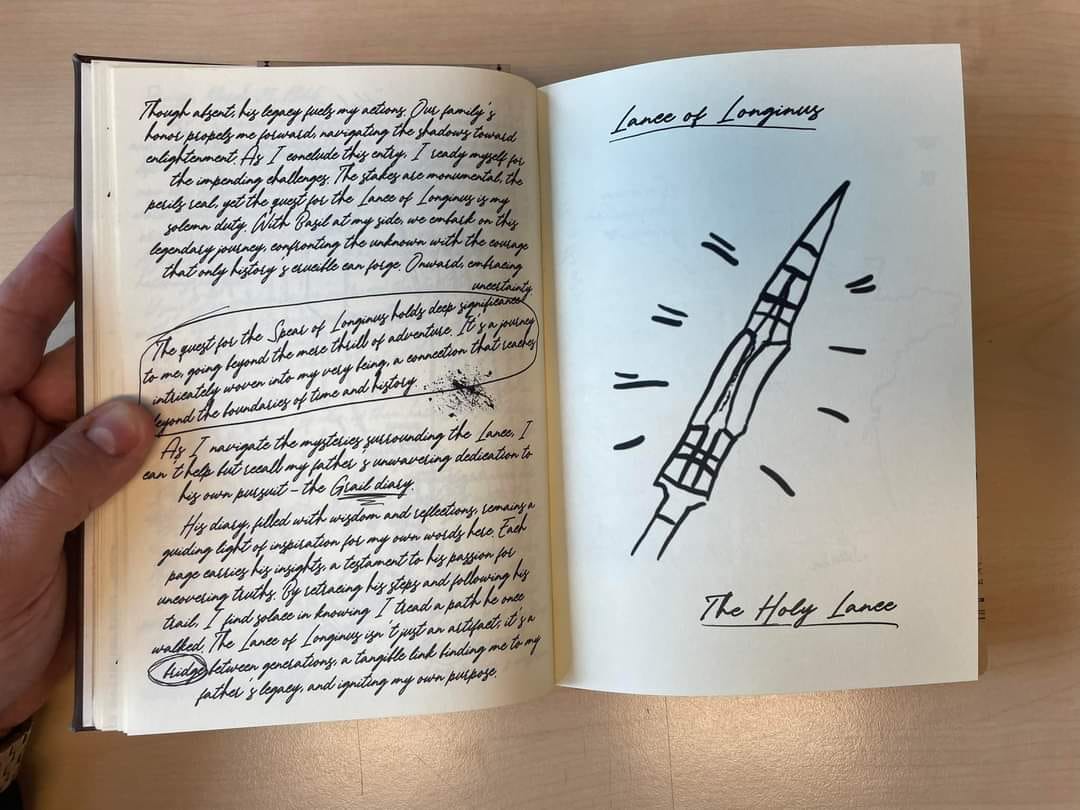 Though absent, his legacy fuels my actions. Our family's
honor propels me forward, navigating the shadows toward
enlightenment. As I conclude this entry, I ready myself for
the impending challenges. The stakes are monumental, the
perils real, yet the quest for the Lance of Longinus is my
solemn duty. With Basil at my side, we embark on this
legendary journey, confronting the unknown with the courage
that only history s crucible can forge. Onward, embracing
uncertainty.
The quest for the Spear of Longinus holds deep significance
to me, going beyond the mere thrill of adventure. It s a journey
intricately woven into my very being, a connection that reaches
beyond the boundaries of time and history.
As I navigate the mysteries surrounding the Lance, I
can t help but recall my father s unwavering dedication to
his own pursuit – the Grail diary.
His diary, filled with wisdom and reflections, remains a
guiding light of inspiration for my own words here. Each
page carries his insights, a testament to his passion for
uncovering truths. By retracing his steps and following his
trail, I find solace in knowing I tread a path he once
walked. The Lance of Longinus isn t just an artifact; it s a
bridge between generations, a tangible link binding me to my
father s legacy, and igniting my own purpose.
Lance of Longinus
The Holy Lance